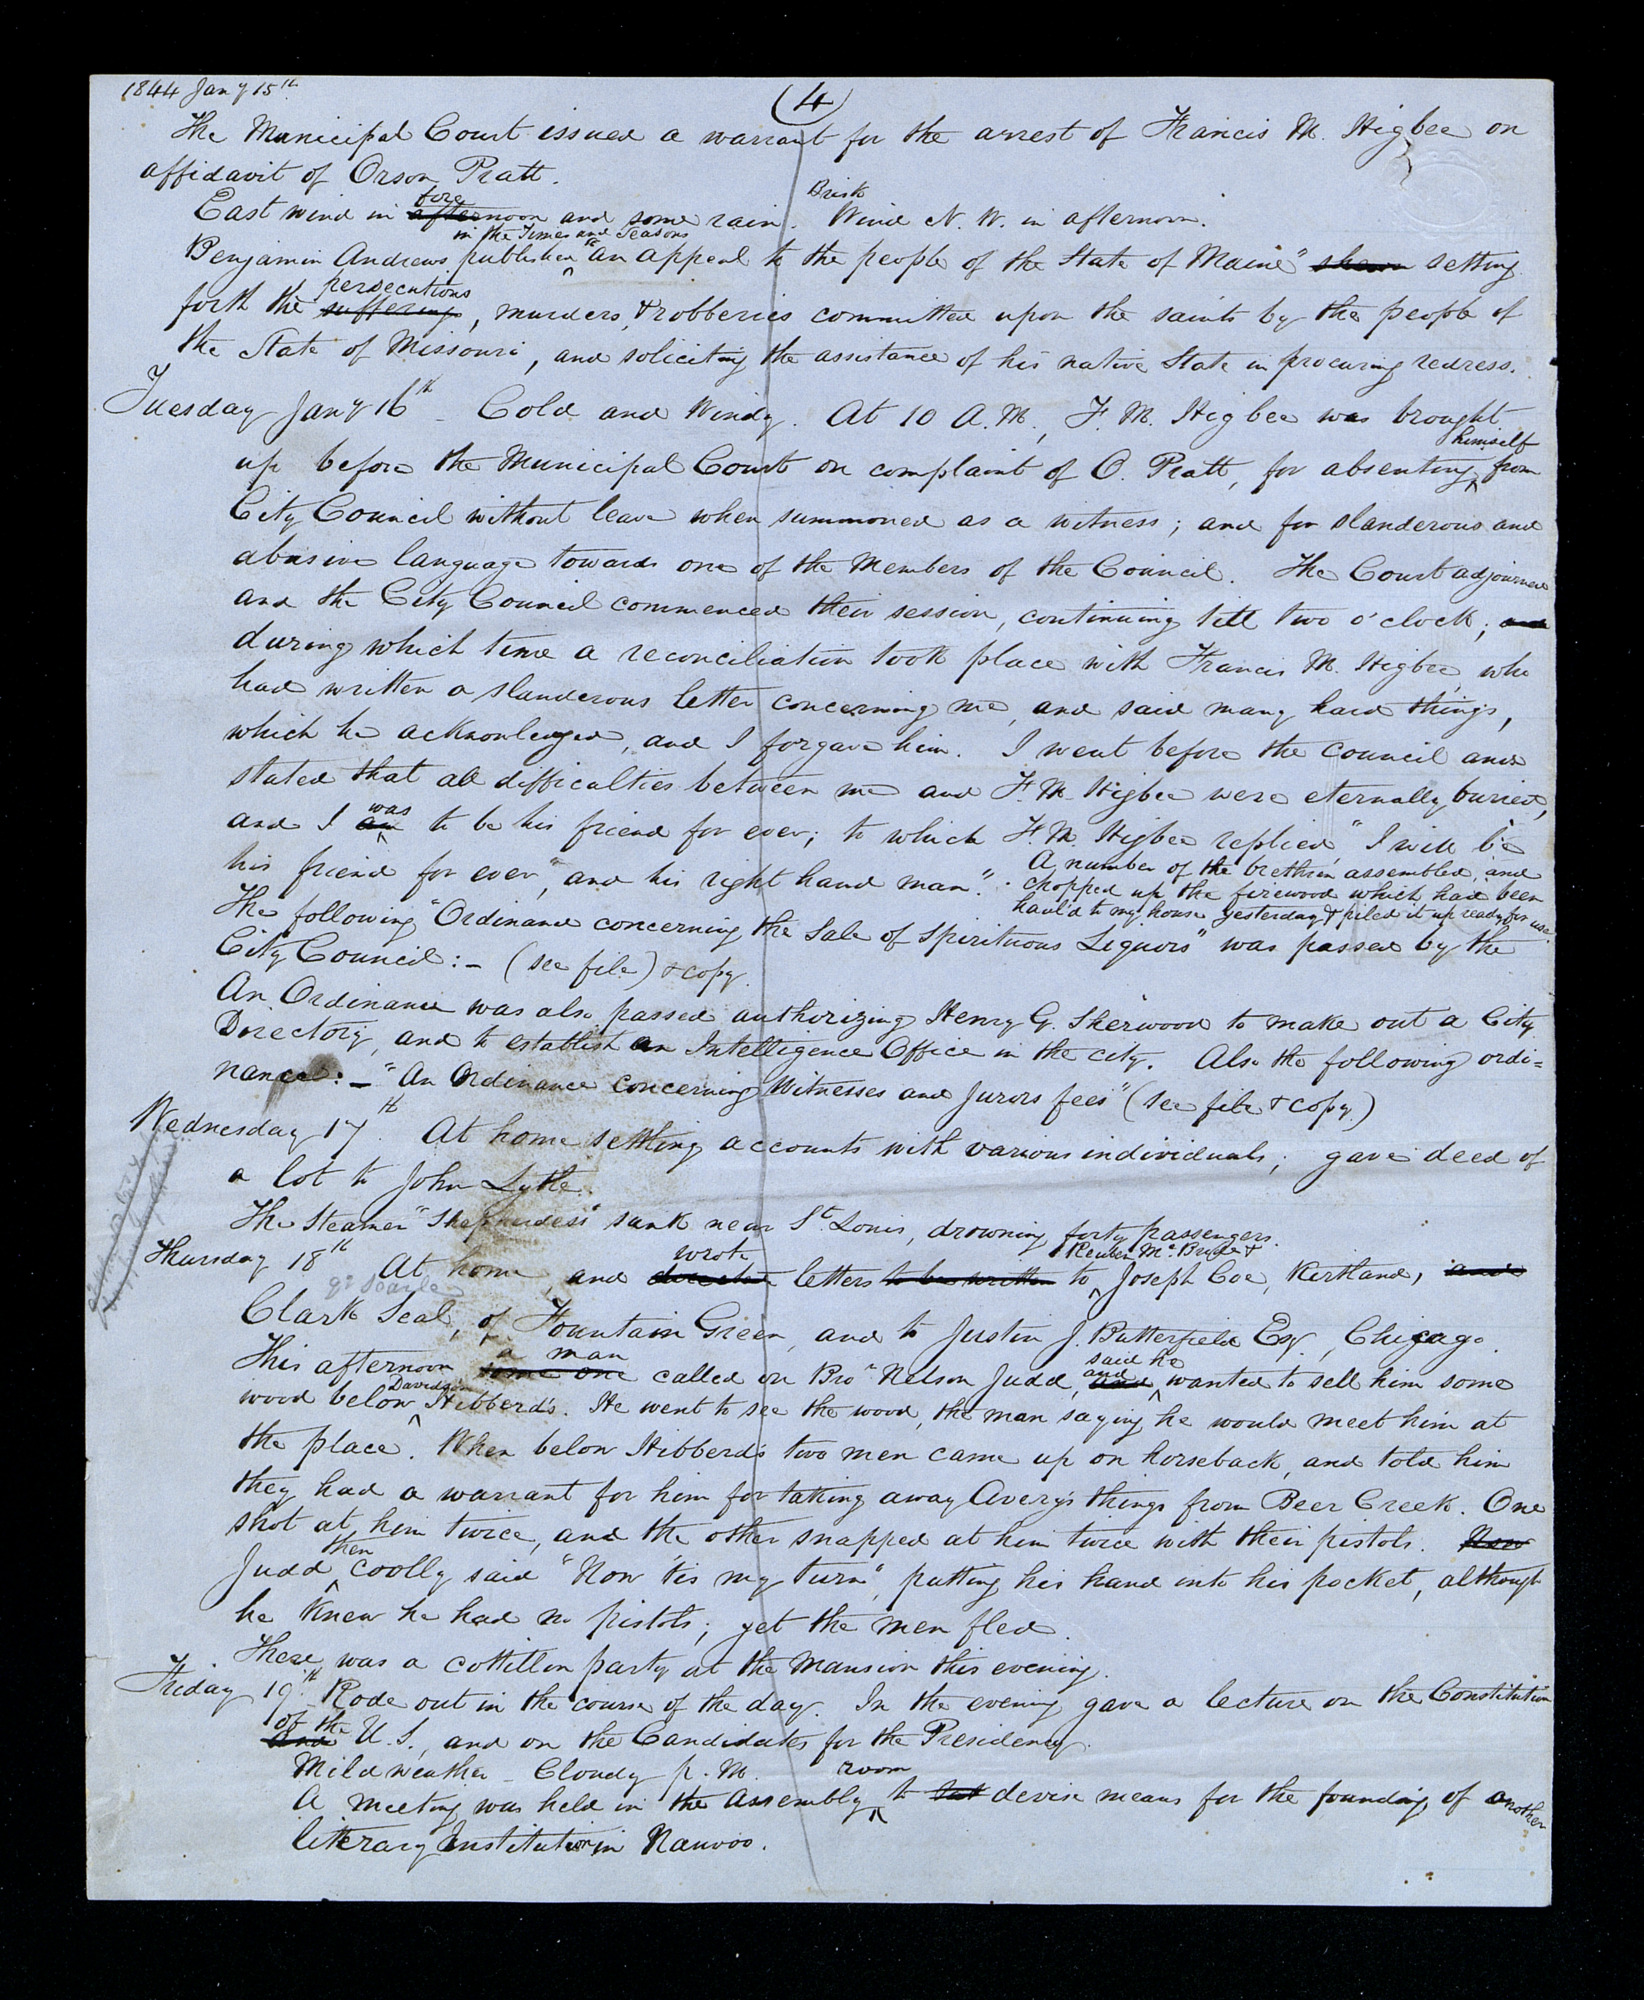 1844 Jany 15th
(4)
The Municipal Court issued a warrant for the arrest of Francis M. Higbee on
affidavit of Orson Pratt.
fore Brisk
East wind in afternoon and some rain. Wind N. W. in afternoon.
in the Times and Seasons
Benjamin Andrews published "an appeal to the people of the State of Maine" shewn setting
persecutions
forth the sufferings, murders, & robberies committed upon the saints by the people of
the State of Missouri, and soliciting the assistance of his native State in procuring redress.
Tuesday Jany 16th - Cold and Windy. At 10 A.M., F. M. Higbee was brought
himself
up before the Municipal Court on complaint of O. Pratt, for absenting ^ from
City Council without leave when summoned as a witness; and for slanderous and
abusive language towards one of the Members of the Council. The Court adjourned
and the City Council commenced their session, continuing till two o'clock; and
during which time a reconciliation took place with Francis M. Higbee, who
had written a slanderous letter concerning me, and said many hard things,
which he acknowledged, and I forgave him. I went before the council and
stated that all difficulties between me and F. M. Higbee were eternally buried,
was
and I am ^ to be his friend for ever; to which F. M. Higbee replied, "I will be
his friend for ever, and his right hand man." A number of the brethren assembled, and
chopped up the firewood which had been
haul'd to my house yesterday & piled it up ready for use.
The following "Ordinance concerning the Sale of Spirituous Liquors" was passed by the
City Council:- (see file) & copy.
An Ordinance was also passed authorizing Henry G. Sherwood to make out a City
Directory, and to establish an Intelligence Office in the city. Also the following ordi=
nance:- "An Ordinance concerning Witnesses and Jurors fees" (see file & copy)
Wednesday 17th. At home settling accounts with various individuals; gave deed of
a lot to John Lytle.
The Steamer "Shepherdess" sank near St. Louis, drowning forty passengers.
wrote Reuben McBride &
Thursday 18th At home, and directed letters to be written to ^ Joseph Coe, Kirtland, and
Clark Leal, of Fountain Green, and to Justin J. Butterfield Esqr, Chicago.
a man said he
and
This afternoon some one called on Bror Nelson Judd, and ^ wanted to sell him some
Davidson
wood below ^ Hibberd's. He went to see the wood, the man saying he would meet him at
the place. When below Hibberds two men came up on horseback, and told him
they had a warrant for him for taking away Avery's things from Bear Creek. One
shot at him twice, and the other snapped at him twice with their pistols. Now
then
Judd ^ coolly said "Now 'tis my turn", putting his hand into his pocket, although
he knew he had no pistols; yet the men fled.
There was a cotillion party at the Mansion this evening.
Friday 19th - Rode out in the course of the day. In the evening gave a lecture on the Constitution
of the
and U. S., and on the Candidates for the Presidency.
Mild weather - Cloudy p. M.
room
A meeting was held in the Assembly ^ to devise means for the founding of another
literary Institution in Nauvoo.